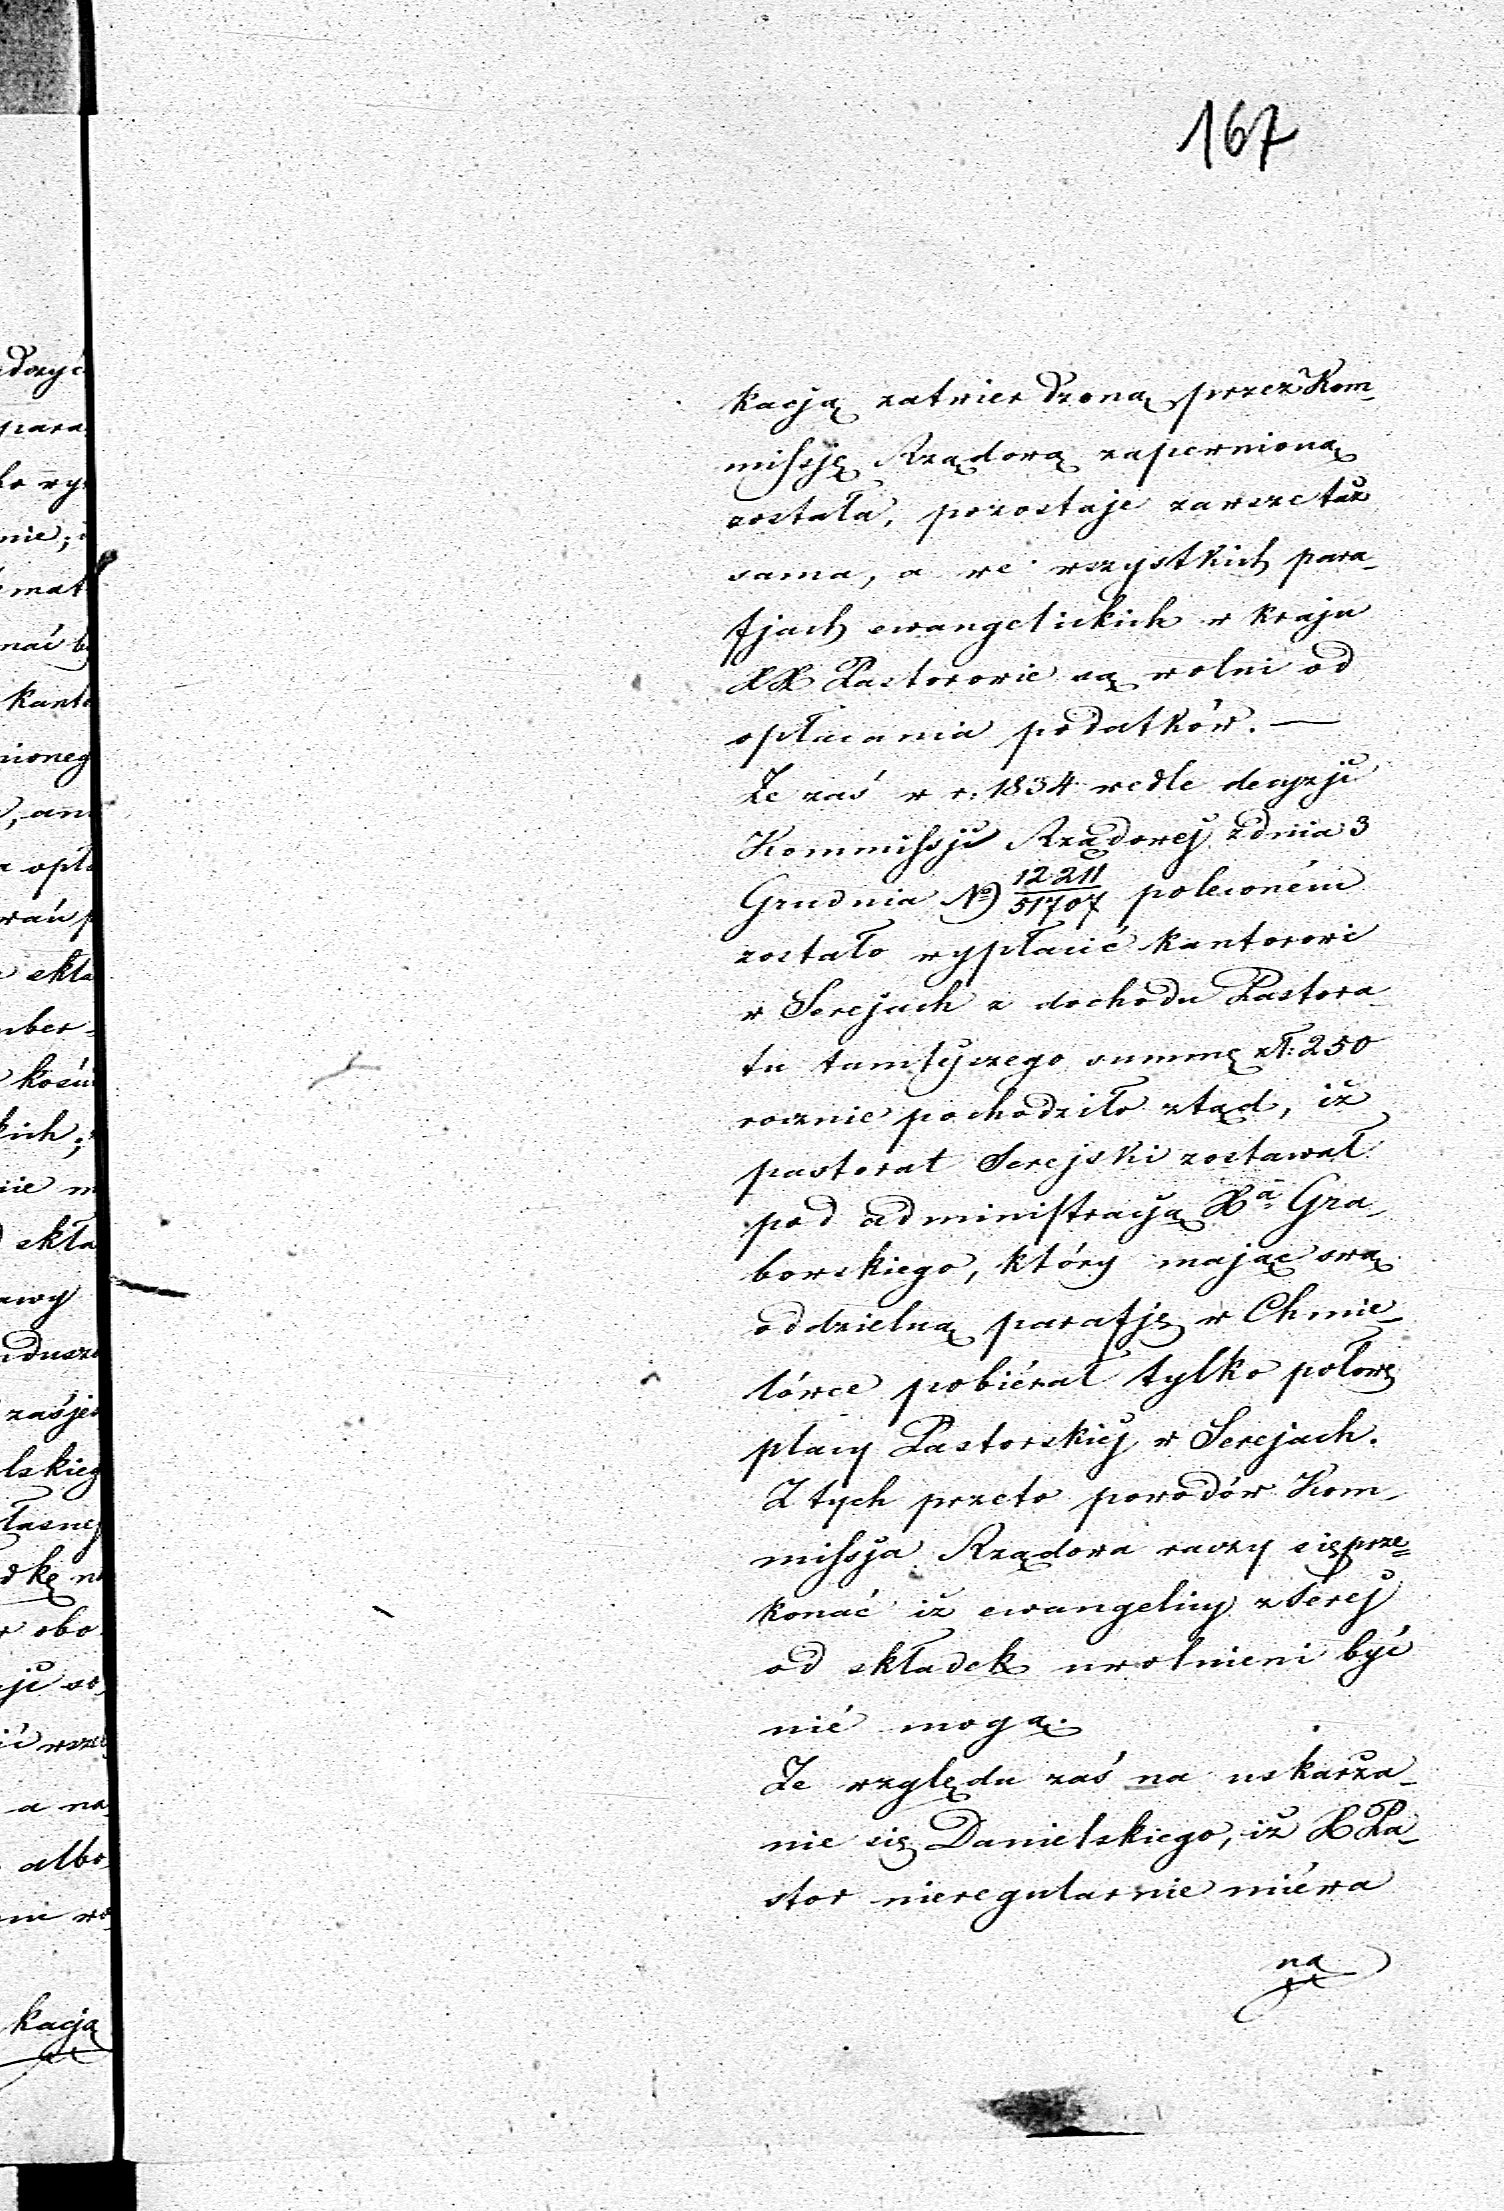 167
kacją zatwierdzoną przez Kom-
missję Rządową zapewnioną
została, pozostaje zawsze taż
sama, a we wszystkich para-
fjach ewangelickich w kraju
XX Pastorowie są wolni od
opłacania podatków. —
Że zaś w r. 1834 wedle decyzji
Kommissji Rządowej z dnia 3
Grudnia No 12211/51707 poleconém
zostało wypłacić kantorowi
w Serejach z dochodu Pastora-
tu tamtejszego summę zł: 250
rocznie pochodziło ztąd, iż
pastorat Serejski zostawał
pod administracją Xa Gra-
bowskiego, który mając swą
oddzielną parafję w Chmie-
lówce pobiérał tylko połowę
płacy Pastorskiéj w Serejach.
Z tych przeto powodów Kom-
missja Rządowa raczy się prze=
konać iż ewangelicy z Serej
od składek uwolnieni być
nié mogą.
Ze względu zaś na uskarża-
nie się Danielskiego, iż X Pa-
stor nieregularnie miéwa
na
para
nie;
mat
kant
opła
skła
kich;
skła
zaś jes
a na
albo
kacją